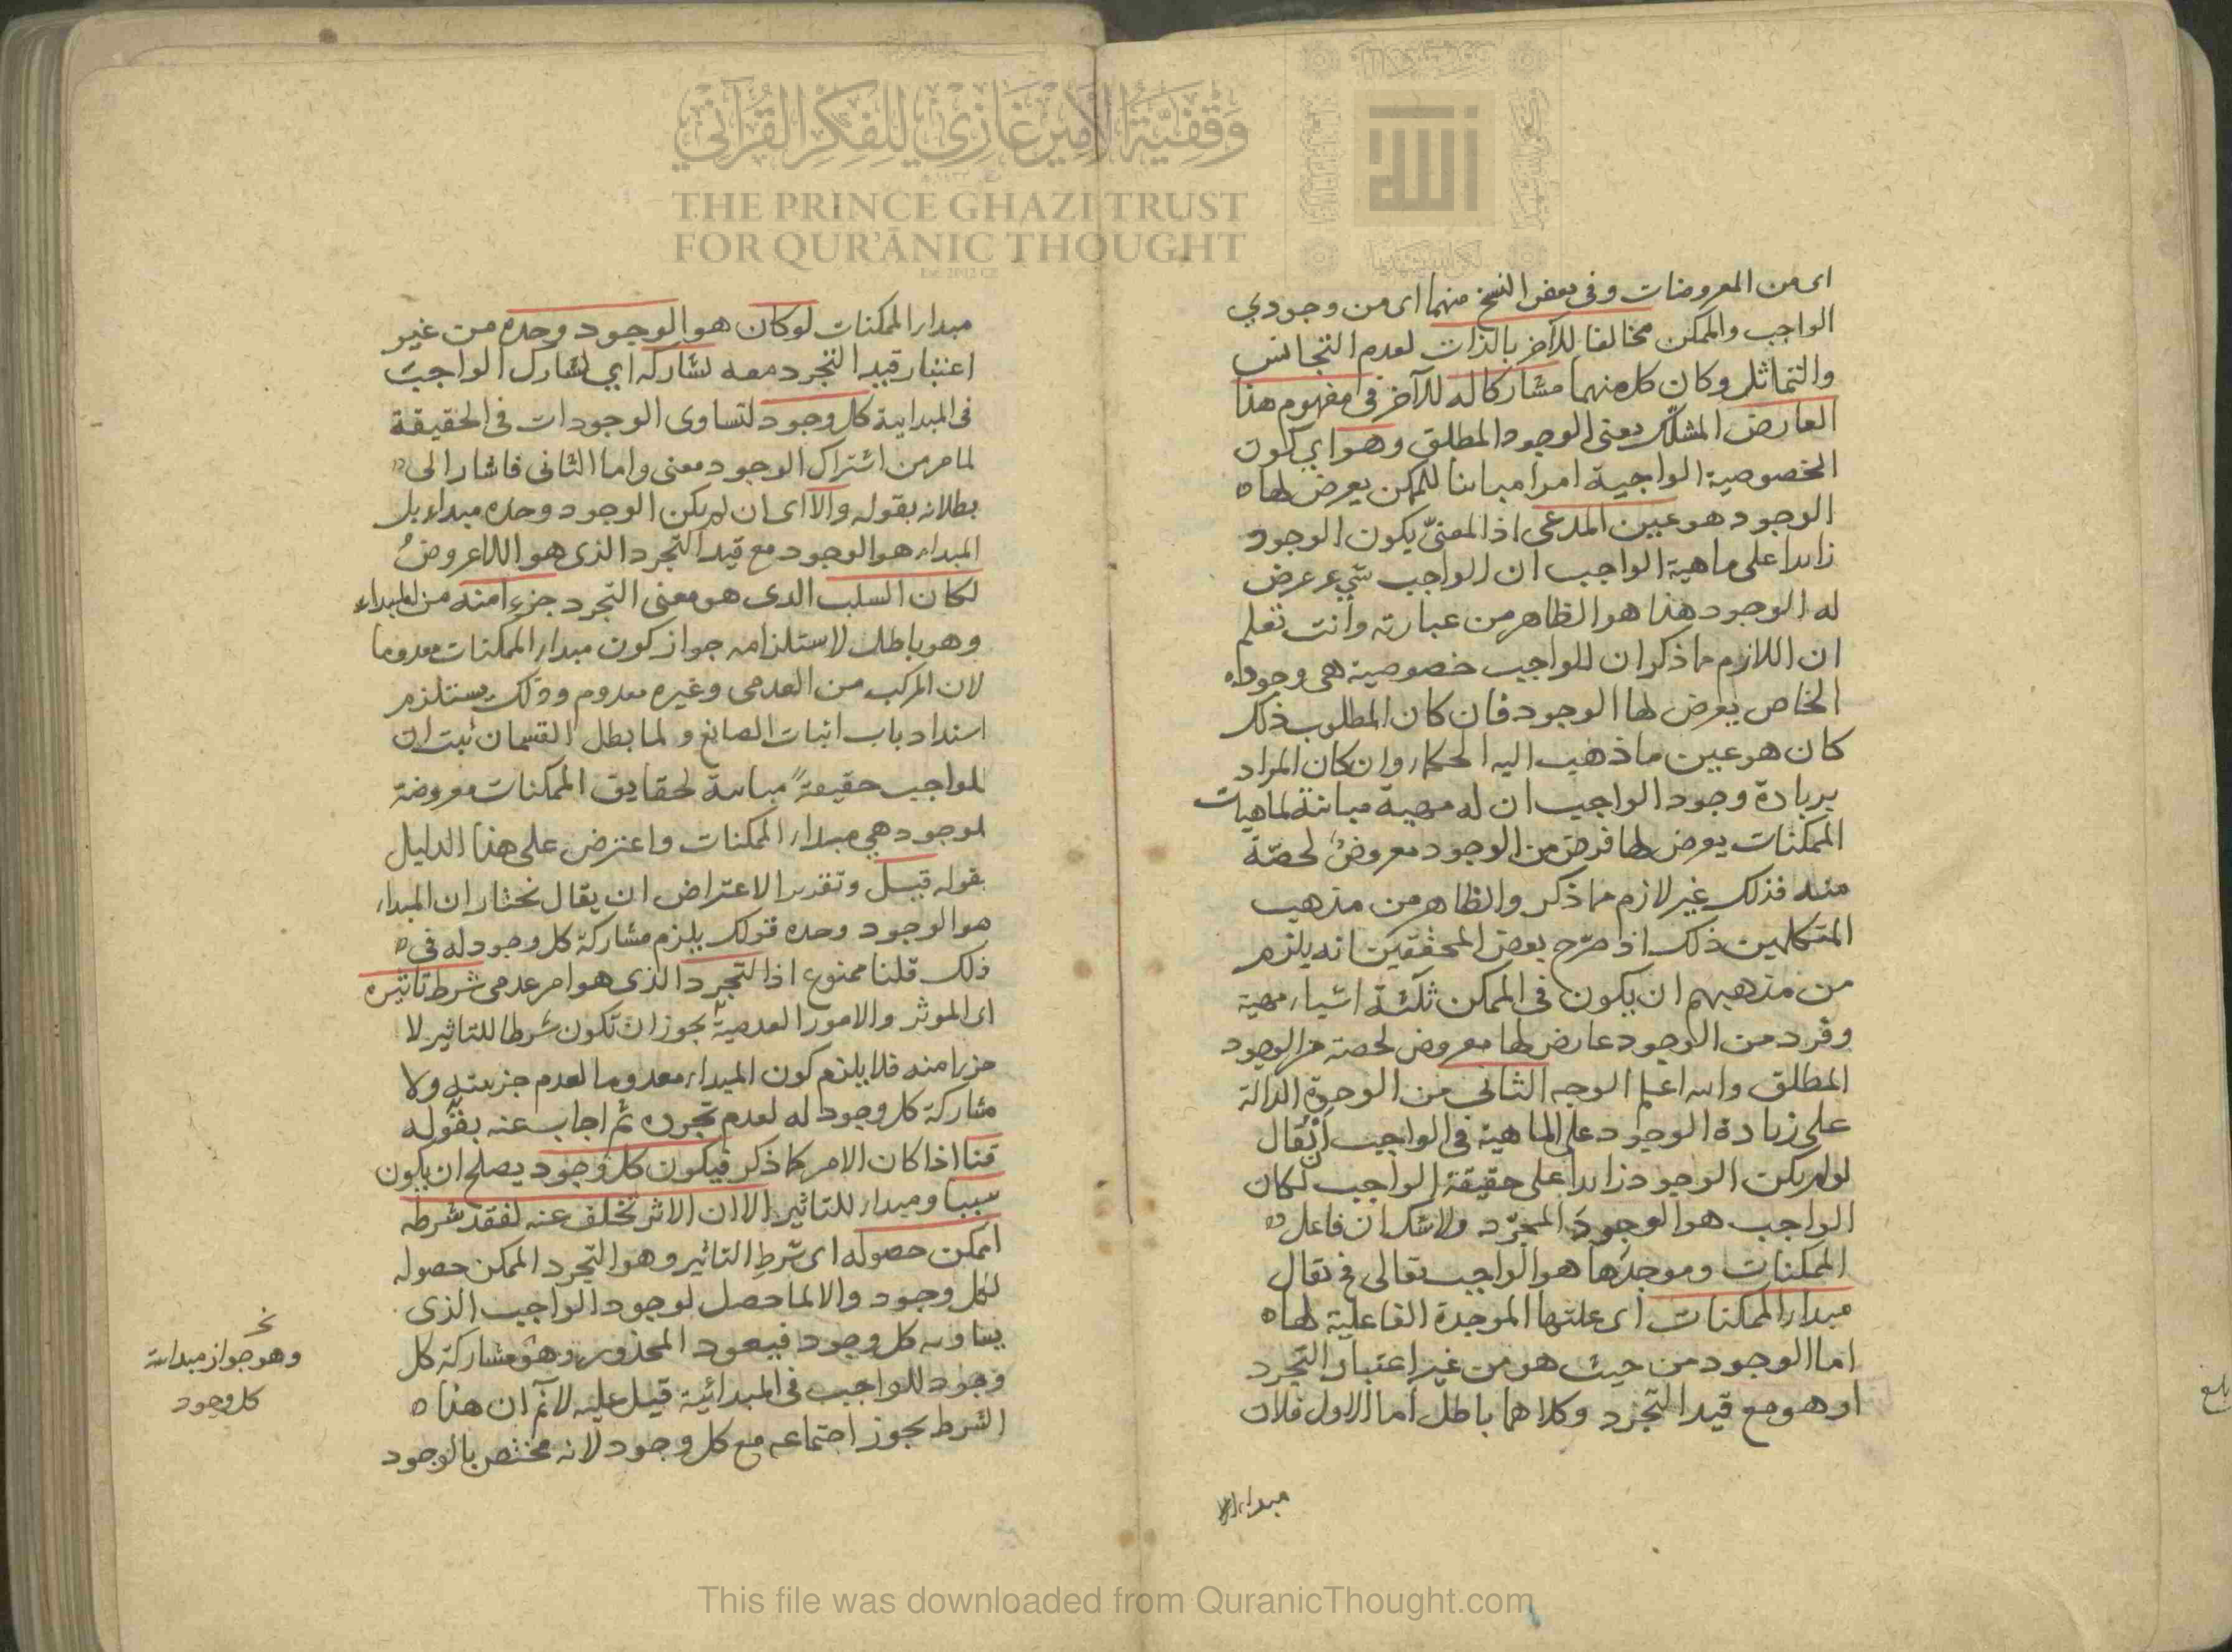 اى من المعروضات وفى بعض النسخ منهما اى من وجودي
الواجب والممكن مخالفا للآخر بالذات لعدم التجانس
والتماثل وكان كل منهما مشاركا له للآخر فى مفهوم هذا
العارض المشكك يعنى الوجود المطلق وهو اي كون
الخصوصية الواجبية امرا مباينا للممكن يعرض لها
الوجود هو عين المدعى اذ المعنىّ بكون الوجود
زايدا على ماهية الواجب ان الواجب شيء عرض
له الوجود هذا هو الظاهر من عبارته وانت تعلم
ان اللازم مما ذكر ان للواجب خصوصية هى وجوده
الخاص يعرض لها الوجود فان كان المطلوب ذلك
كان هو عين ما ذهب اليه الحكماء وان كان المراد
بزيادة وجود الواجب ان له مهية مباينة لماهيات
الممكنات يعرض لها فرض من الوجود معروضٌ لحصّة
منه فذلك غير لازم مما ذكر والظاهر من مذهب
المتكلمين ذلك اذ صرّح بعض المحققين انه يلزم
من مذهبهم ان يكون فى الممكن ثلثة اشياء مهية
وفرد من الوجود عارض لها معروض لحصته من الوجود
المطلق والله اعلم الوجه الثانى من الوجوه الدالة
على زيادة الوجود على الماهية فى الواجب ان يقال
لو لم يكن الوجود زايدا على حقيقة الواجب لكان
الواجب هو الوجود المجرّد ولا شك ان فاعل
الممكنات وموجدها هو الواجب تعالى فح نقال
مبداء الممكنات اى علتها الموجدة الفاعلية لها
اما الوجود من حيث هو من غير اعتبار التجرد
او هو مع قيد التجرد وكلاهما باطل اما الاول فلان
بلغ
مبداء الممكنات لو كان هو الوجود وحده من غير
اعتبار قيد التجرد معه لشاركه اي لشارك الواجب
فى المبداية كل وجود لتساوى الوجودات فى الحقيقة
لما مر من اشتراك الوجود معنى واما الثانى فاشار الى
بطلانه بقوله والا اى ان لم يكن الوجود وحده مبداء بل
المبداء هو الوجود مع قيد التجرد الذى هو اللاعروضُ
لكان السلب الذى هو معنى التجرد جزءا منه من المبداء
وهو باطل لاستلزامه جواز كون مبداء الممكنات معدوما
لان المركب من العدمى وغيره معدوم وذلك يستلزم
انسداد باب اثبات الصانع ولما بطل القسمان ثبت ان
للواجب حقيقة مباينة لحقايق الممكنات معروضة
لوجود هي مبداء الممكنات واعترض على هذا الدليل
بقوله قيل وتقدير الاعتراض ان يقال نختار ان المبداء
هو الوجود وحده قولك يلزم مشاركة كل وجود له فى
ذلك قلنا ممنوع اذ التجرد الذى هو امر عدمى شرط تاثيره
اى الموثر والامور العدمية يجوز ان تكون شرطا للتاثير لا
جزءا منه فلا يلزم كون المبداء معدوما لعدم جزئيته ولا
مشاركة كل وجود له لعدم تجرده ثم اجاب عنه بقوله
قلنا اذا كان الامر كما ذكر فيكون كل وجود يصلح ان يكون
سببا ومبداء للتاثير الا ان الاثر تخلف عنه لفقد شرطه
الممكن حصوله اى شرط التاثير وهو التجرد الممكن حصوله
لكل وجود والا لما حصل لوجود الواجب الذى
يساويه كل وجود فيعود المحذور وهو مشاركة كل
وجود للواجب فى المبدائية قيل عليه لانم ان هذا
الشرط يجوز اجتماعه مع كل وجود لانه مختص بالوجود
وهو جواز مبدائية
كل وجود
وقفية الأمير غازي للفكر القرآني
THE PRINCE GHAZI TRUST
FOR QUR'ĀNIC THOUGHT
الله
This file was downloaded from QuranicThought.com